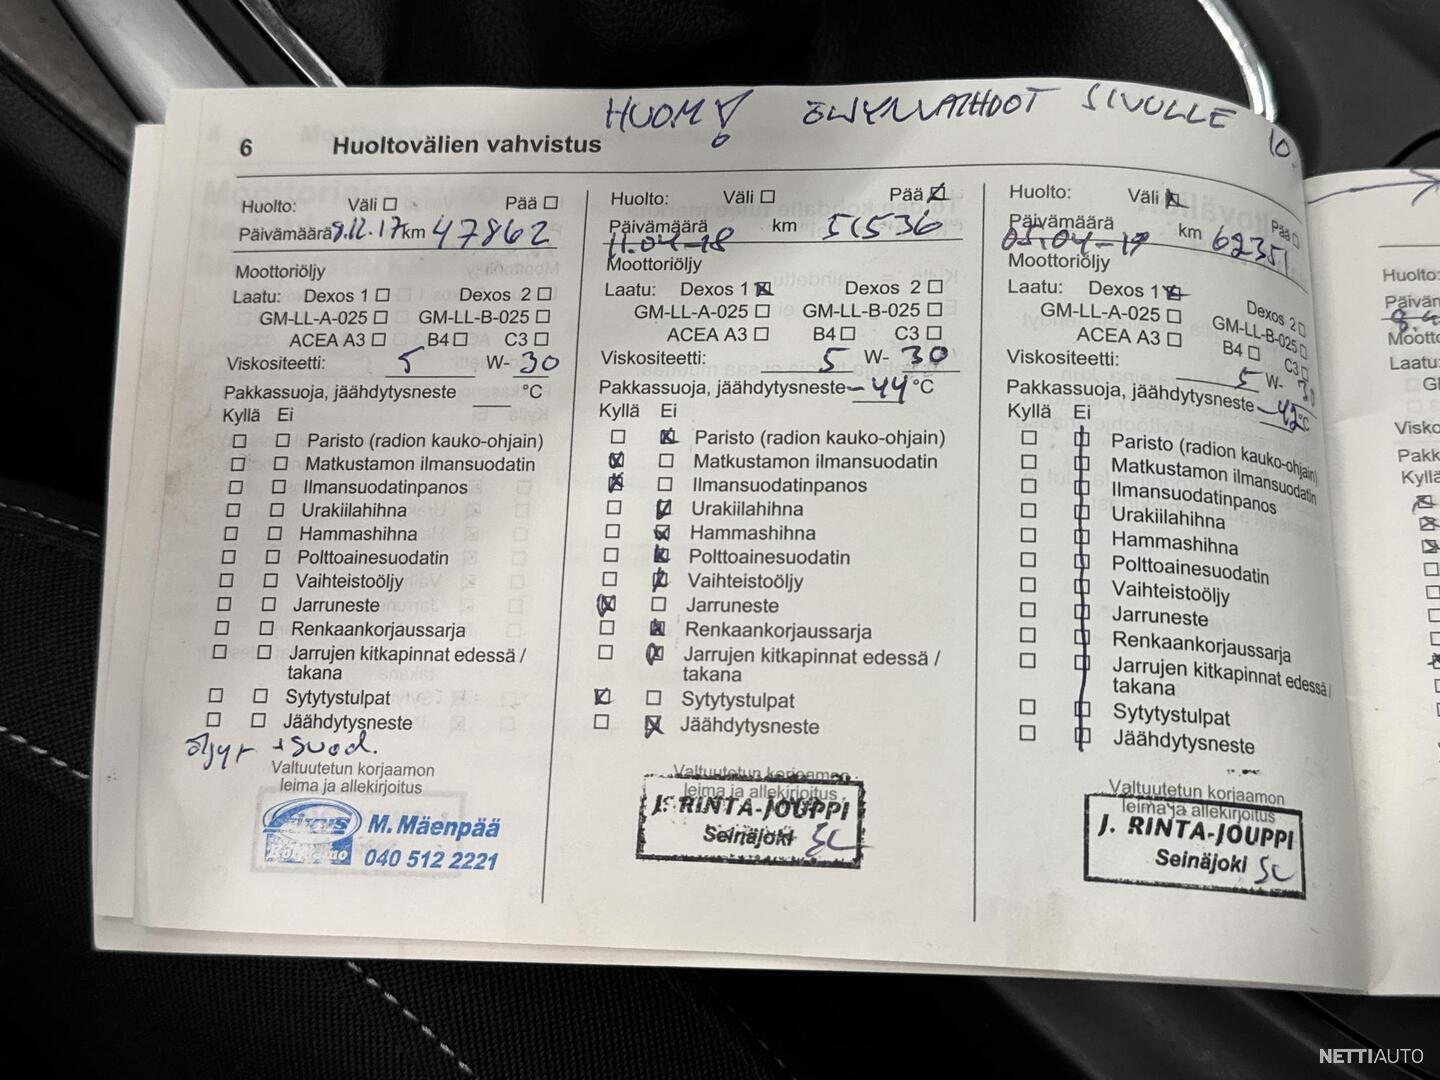 HUOM! ÖLJYNVAIHDOT SIVULLE 10.
6 Huoltovälien vahvistus
Huolto: Väli Pää
Päivämäärä 8.12.17 km 47862
Moottoriöljy
Laatu: Dexos 1 Dexos 2
GM-LL-A-025 GM-LL-B-025
ACEA A3 B4 C3
Viskositeetti: 5 W- 30
Pakkassuoja, jäähdytysneste °C
Kyllä Ei
Paristo (radion kauko-ohjain)
Matkustamon ilmansuodatin
Ilmansuodatinpanos
Urakiilahihna
Hammashihna
Polttoainesuodatin
Vaihteistoöljy
Jarruneste
Renkaankorjaussarja
Jarrujen kitkapinnat edessä /
takana
Sytytystulpat
Jäähdytysneste
öljyt + suod.
Valtuutetun korjaamon
leima ja allekirjoitus
M. Mäenpää
040 512 2221
Huolto: Väli Pää
Päivämäärä km 51536
11.04-18
Moottoriöljy
Laatu: Dexos 1 Dexos 2
GM-LL-A-025 GM-LL-B-025
ACEA A3 B4 C3
Viskositeetti: 5 W- 30
Pakkassuoja, jäähdytysneste -44 °C
Kyllä Ei
Paristo (radion kauko-ohjain)
Matkustamon ilmansuodatin
Ilmansuodatinpanos
Urakiilahihna
Hammashihna
Polttoainesuodatin
Vaihteistoöljy
Jarruneste
Renkaankorjaussarja
Jarrujen kitkapinnat edessä /
takana
Sytytystulpat
Jäähdytysneste
Valtuutetun korjaamon
leima ja allekirjoitus
J. RINTA-JOUPPI
Seinäjoki
Huolto: Väli Pää
Päivämäärä km 62351
05.04-19
Moottoriöljy
Laatu: Dexos 1 Dexos 2
GM-LL-A-025 GM-LL-B-025
ACEA A3 B4 C3
Viskositeetti: 5 W- 30
Pakkassuoja, jäähdytysneste -42 °C
Kyllä Ei
Paristo (radion kauko-ohjain)
Matkustamon ilmansuodatin
Ilmansuodatinpanos
Urakiilahihna
Hammashihna
Polttoainesuodatin
Vaihteistoöljy
Jarruneste
Renkaankorjaussarja
Jarrujen kitkapinnat edessä /
takana
Sytytystulpat
Jäähdytysneste
Valtuutetun korjaamon
leima ja allekirjoitus
J. RINTA-JOUPPI
Seinäjoki
Huolto:
Laatu:
Kyllä
NETTIAUTO